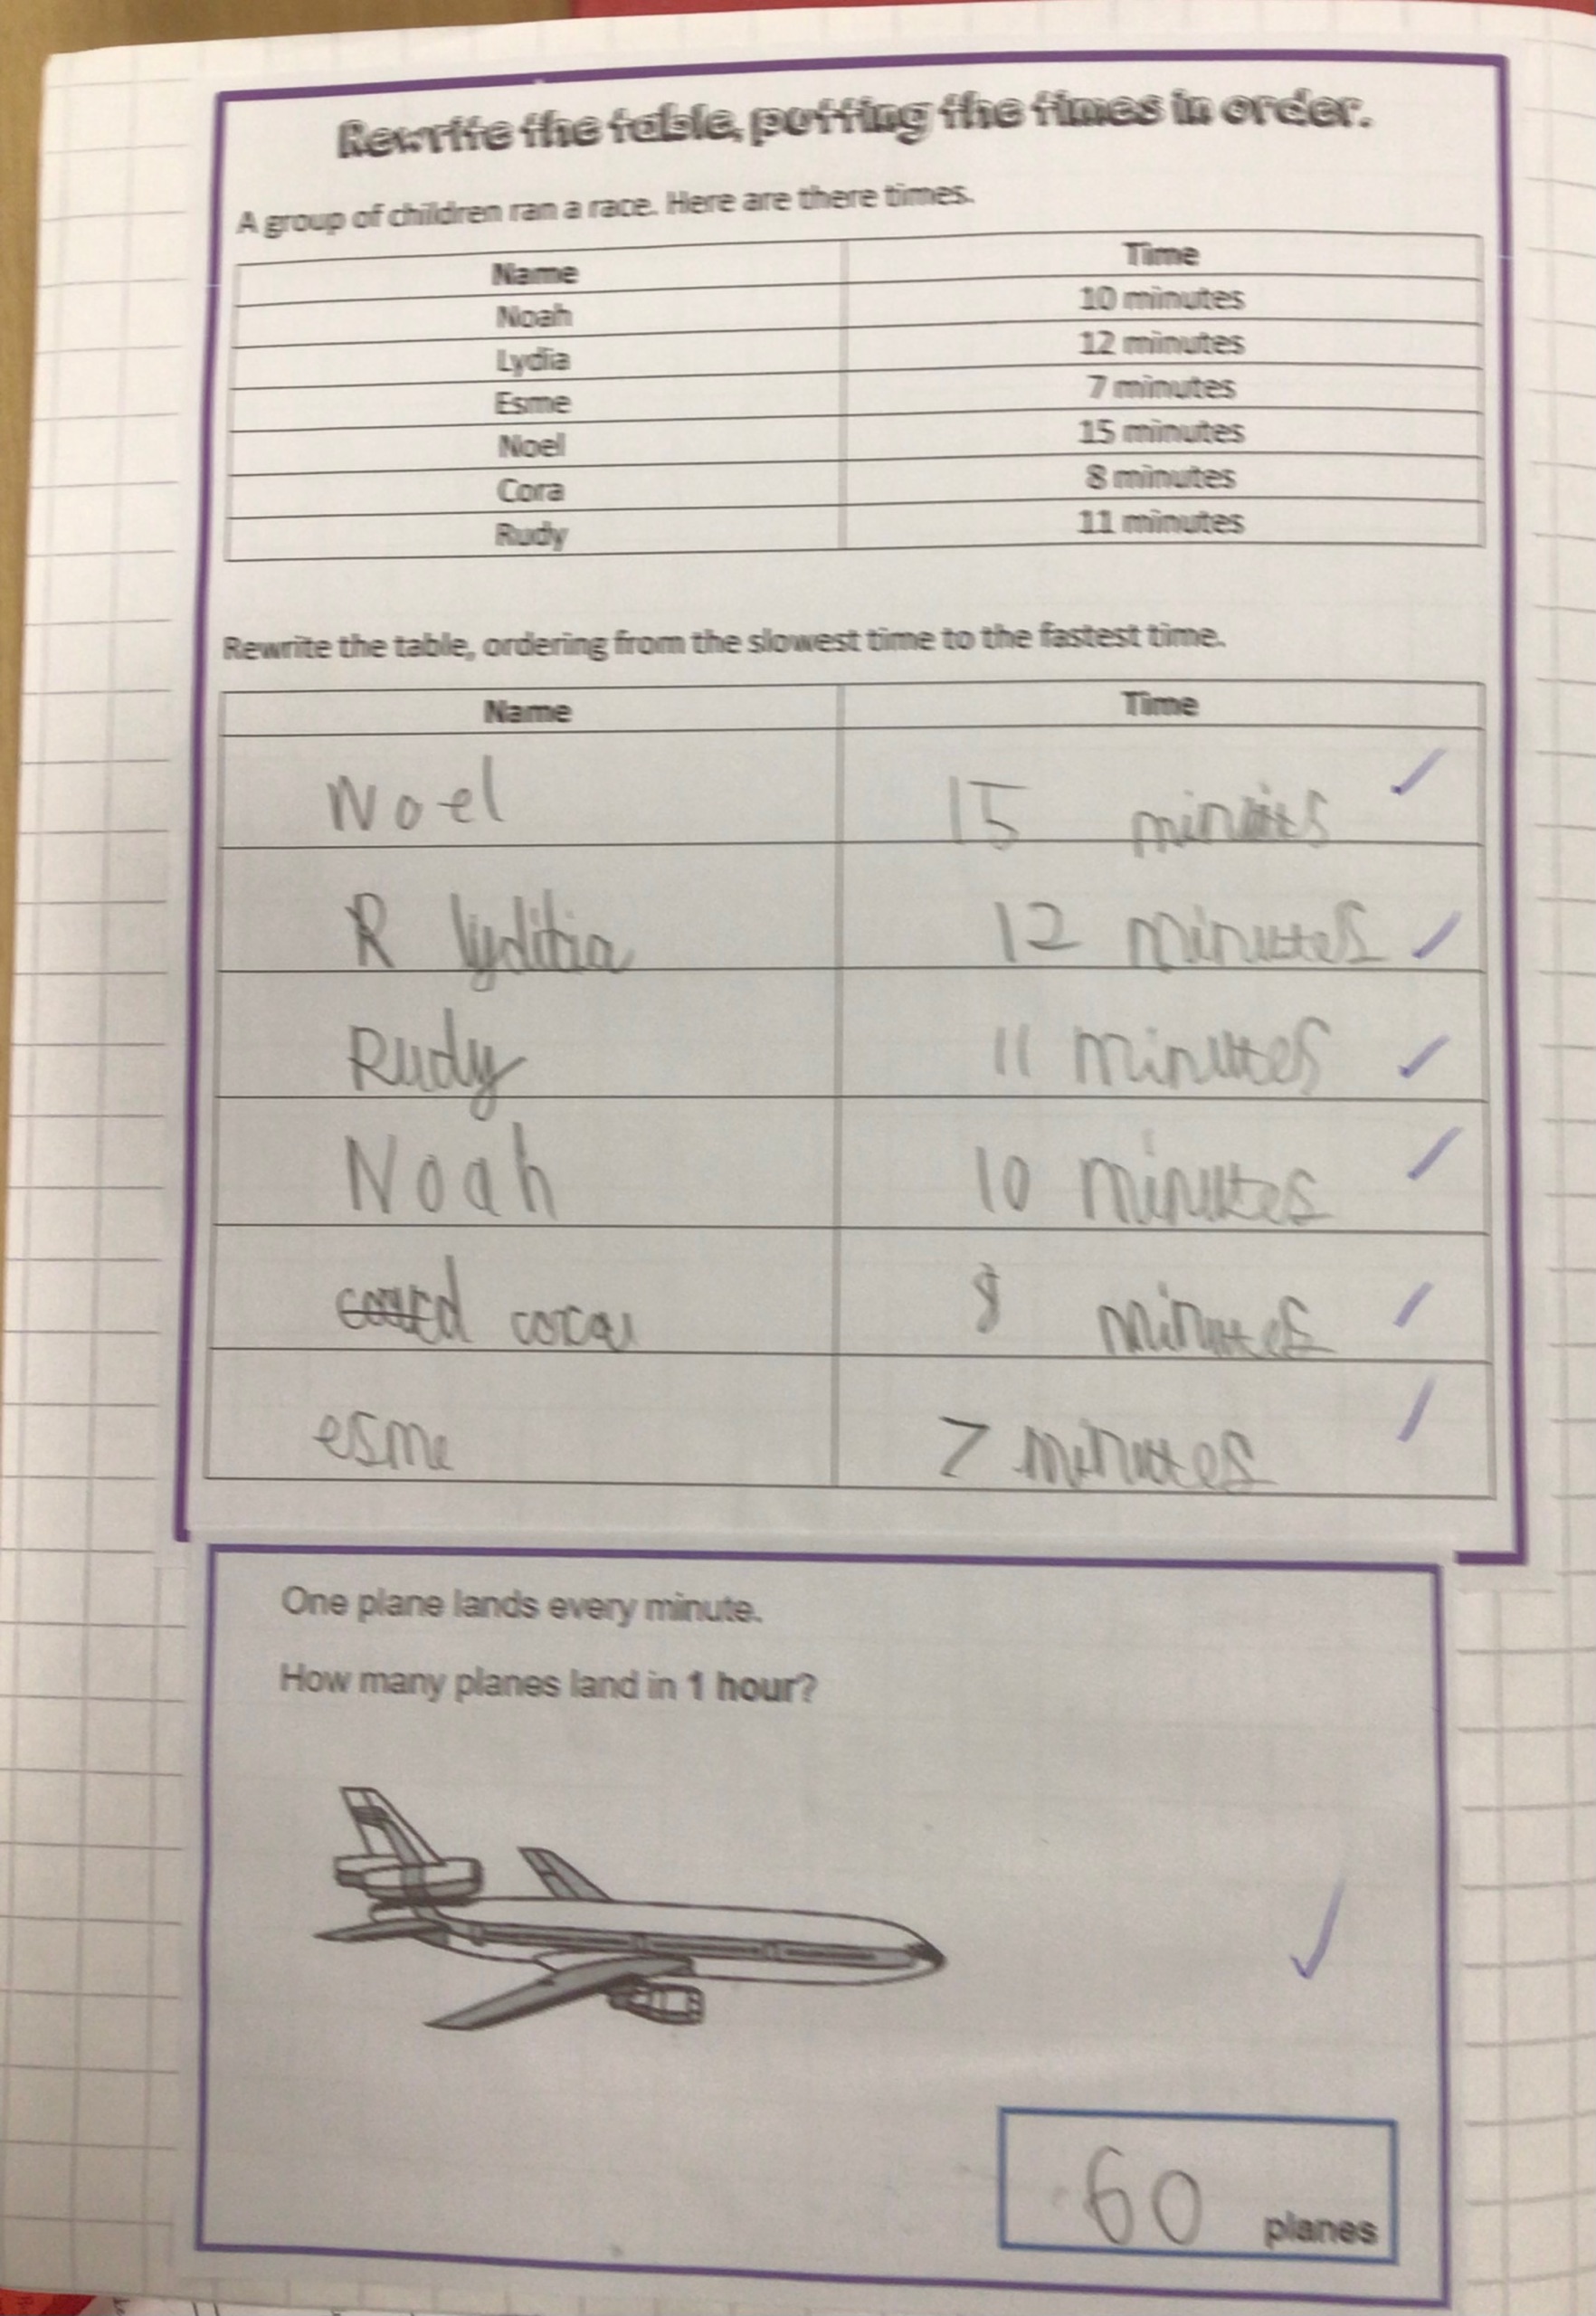 Rewrite the table, putting the times in order.
A group of children ran a race. Here are there times.
Name Time
Noah 10 minutes
Lydia 12 minutes
Esme 7 minutes
Noel 15 minutes
Cora 8 minutes
Rudy 11 minutes
Rewrite the table, ordering from the slowest time to the fastest time.
Name Time
Noel 15 minutes
R lyditia 12 minutes
Rudy 11 minutes
Noah 10 minutes
cora 8 minutes
esme 7 minutes
One plane lands every minute.
How many planes land in 1 hour?
60 planes